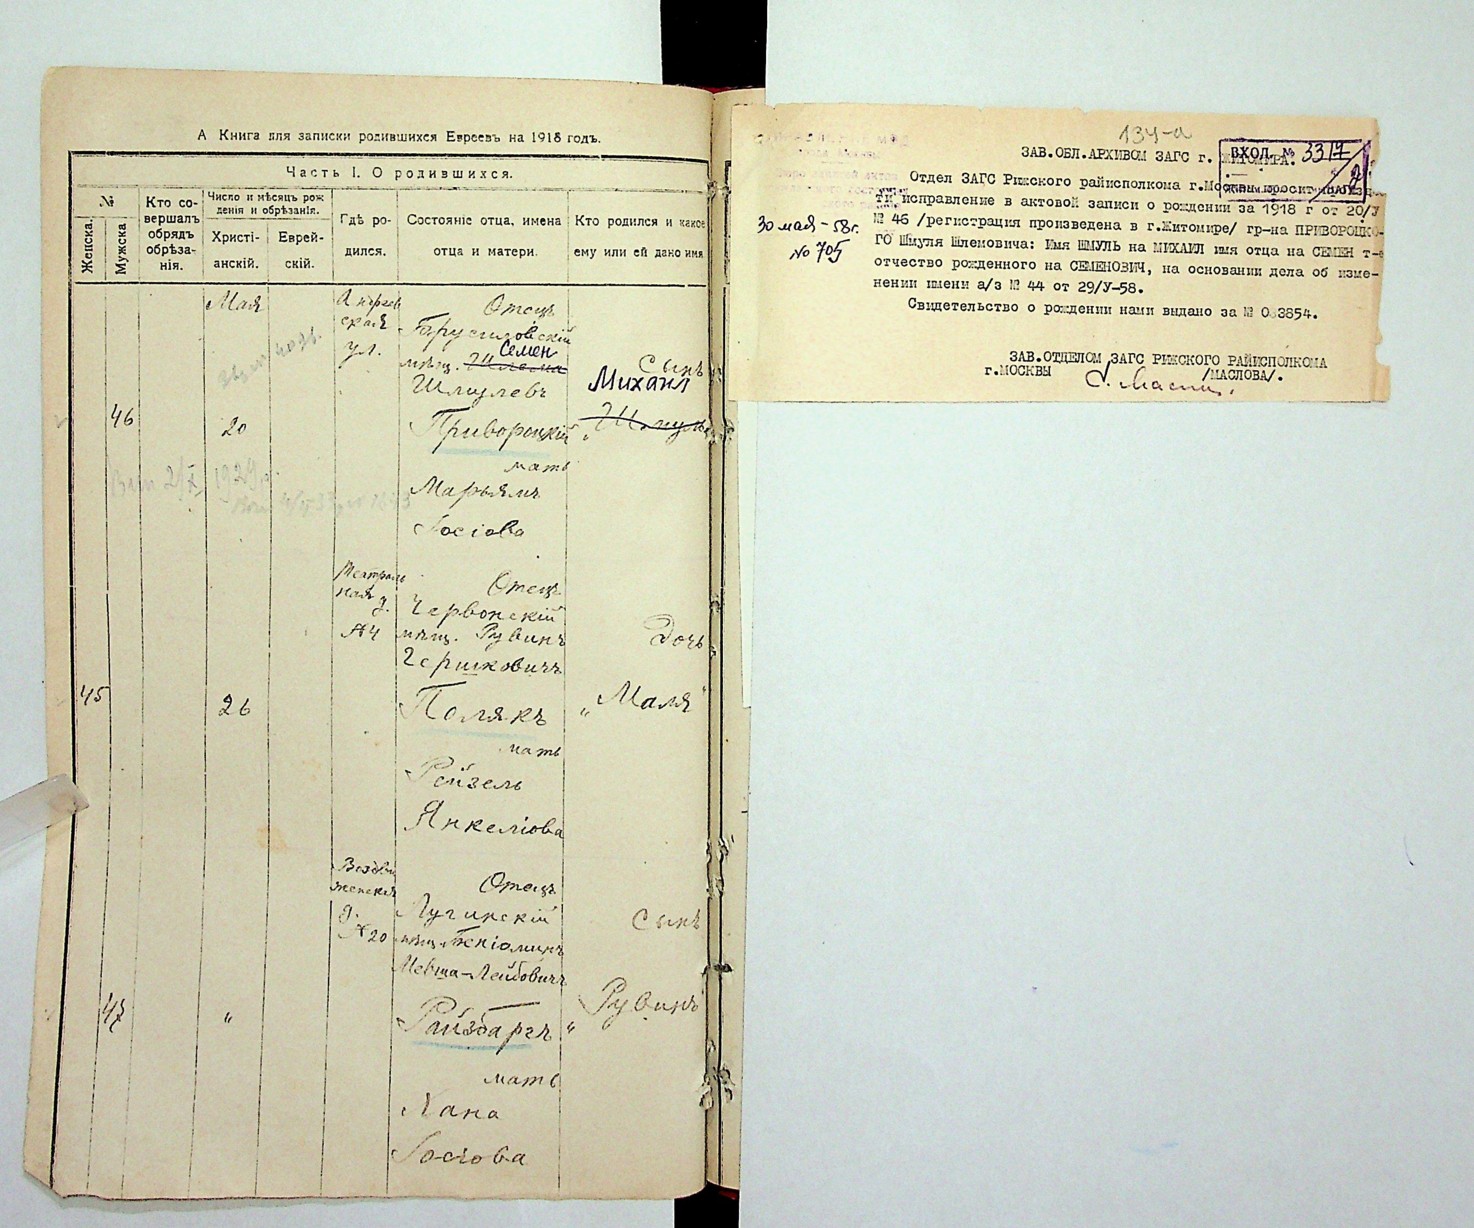 А Книга для записи родившихся Евреевъ на 1918 годъ.
Часть I. О родившихся.
№
Женска.
Мужска
Кто со-
вершалъ
обрядъ
обрѣза-
нія.
Число и мѣсяцъ рож
денія и обрѣзанія.
Христі-
анскій.
Еврей-
скій.
Гдѣ ро-
дился.
Состояніе отца, имена
отца и матери.
Кто родился и какое
ему или ей дано имя
Мая
ул.
Отецъ
мѣщ. Шлема
Семен
Шмулевъ
Сынъ
Михаил
46
20
Приворотскій
„Шмуль
мать
Марьямъ
Іосіова
1929
№ 4
Отецъ
Червонскій
мѣщ. Рувинъ
Гершковичъ
Дочь
45
26
Полякъ
„Маля"
мать
Рейзель
Янкеліова
Воздви
женская
д.
№ 20
Отецъ
Лугинскій
мѣщ. Беніоминъ
Мевша-Лейбовичъ
Сынъ
47
"
Райзбаргъ
" Рувинъ
мать
Хана
Іосіова
134-а
ЗАВ.ОБЛ.АРХИВОМ ЗАГС г. ЖИТОМИРА.
ВХОД. №
Отдел ЗАГС Рижского райисполкома г.Москвы просит
ти исправление в актовой записи о рождении за 1918 г от 20/У
№ 46 /регистрация произведена в г.Житомире/ гр-на ПРИВОРОЦКО-
ГО Шмуля Шлемовича: Имя ШМУЛЬ на МИХАИЛ имя отца на СЕМЕН т-е
отчество рожденного на СЕМЕНОВИЧ, на основании дела об изме-
нении имени а/з № 44 от 29/У-58.
Свидетельство о рождении нами выдано за № 033854.
30 мая - 58г.
№ 705
ЗАВ.ОТДЕЛОМ ЗАГС РИЖСКОГО РАЙИСПОЛКОМА
г.МОСКВЫ /МАСЛОВА/.